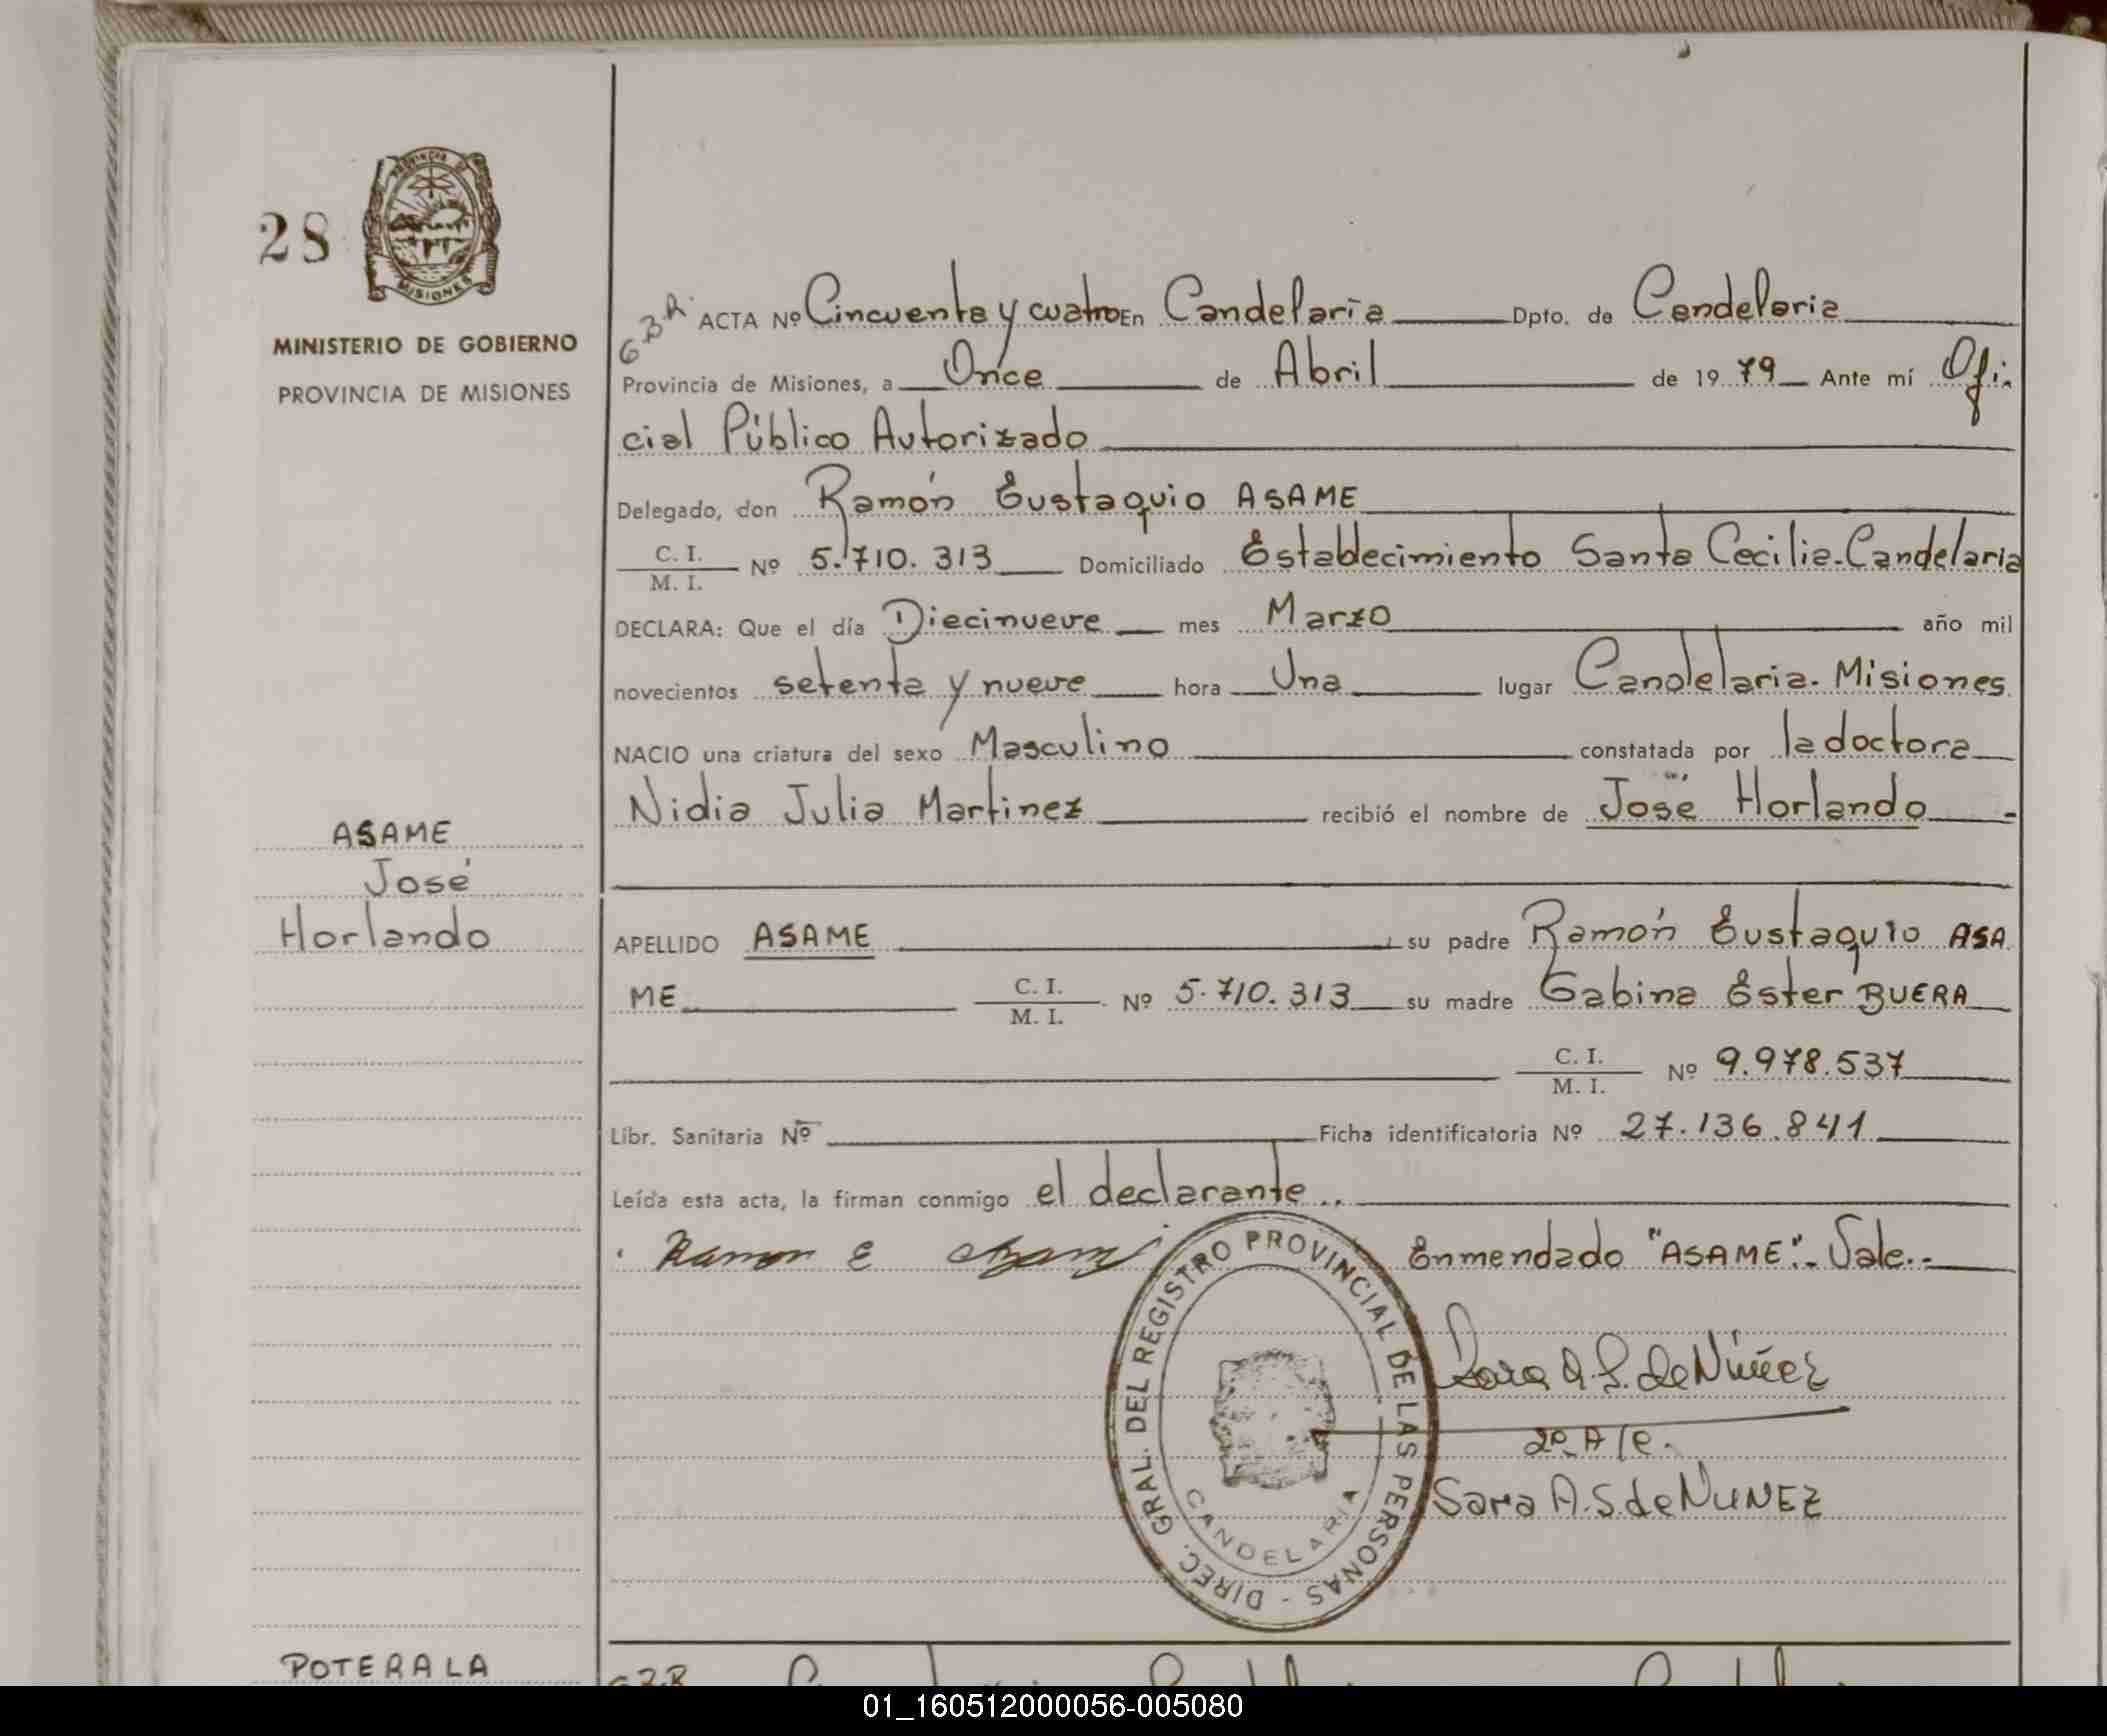 28
PROVINCIA DE
MISIONES
MINISTERIO DE GOBIERNO
PROVINCIA DE MISIONES
ASAME
José
Horlando
POTERALA
ACTA Nº Cincuenta y cuatro En Candelaria Dpto. de Candelaria
Provincia de Misiones, a Once de Abril de 1979 Ante mí Ofi-
cial Público Autorizado
Delegado, don Ramón Eustaquio ASAME
C. I. / M. I. Nº 5.710.313 Domiciliado Establecimiento Santa Cecilia-Candelaria
DECLARA: Que el día Diecinueve mes Marzo año mil
novecientos setenta y nueve hora Una lugar Candelaria-Misiones
NACIO una criatura del sexo Masculino constatada por la doctora
Nidia Julia Martinez recibió el nombre de José Horlando
APELLIDO ASAME su padre Ramón Eustaquio ASA
ME C. I. / M. I. Nº 5.710.313 su madre Gabina Ester BUERA
C. I. / M. I. Nº 9.978.537
Libr. Sanitaria Nº Ficha identificatoria Nº 27.136.841
Leída esta acta, la firman conmigo el declarante..
Ramon E Enmendado "ASAME".- Vale.-
DIREC. GRAL. DEL REGISTRO PROVINCIAL DE LAS PERSONAS -
CANDELARIA
Sara A. S. de Núñez
Sara A. S. de NUNEZ
01_160512000056-005080